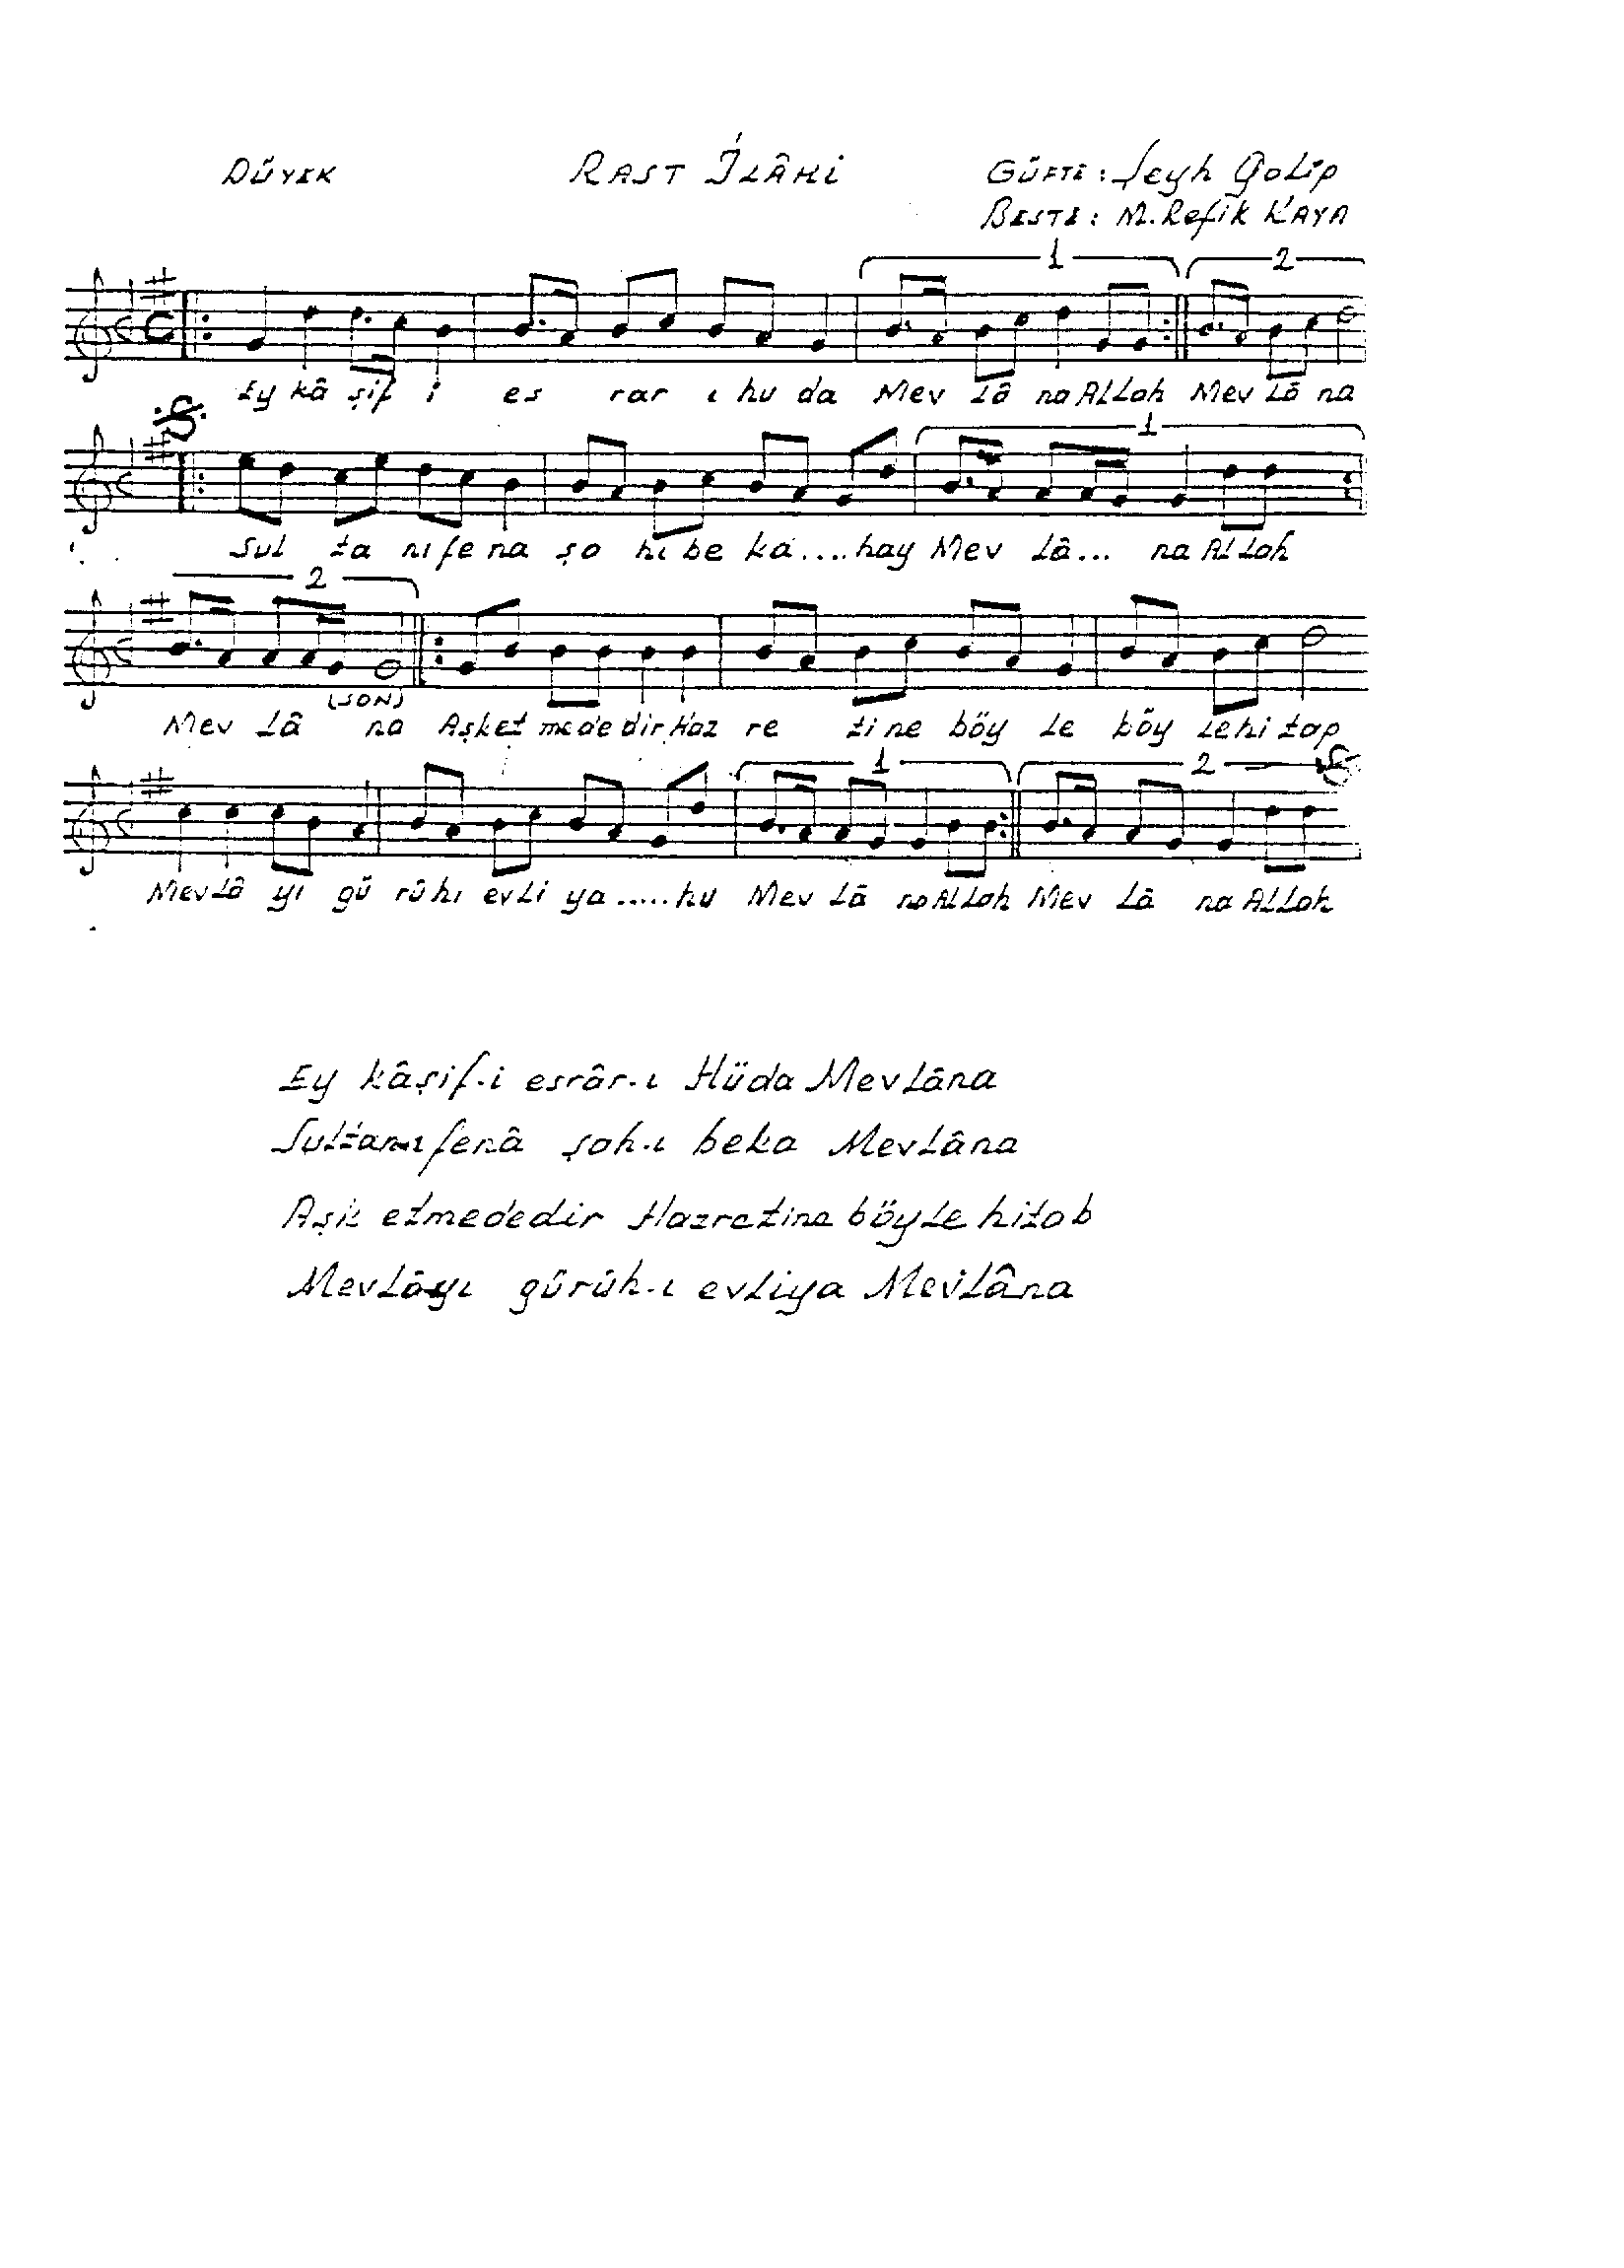 DÜYEK RAST İLÂHİ GÜFTE: Şeyh Galip
BESTE: M. Refik KAYA
1 2
Ey kâ şif i es rar ı hu da Mev lâ na Allah Mev lâ na
1
Sul ta nı fe na şa hı be ka .... hay Mev lâ ... na Allah
2
(SON)
Mev lâ na Aşk et me de dir Haz re ti ne böy le böy le hi tap
1 2
Mev lâ yı gü rû hı ev li ya ..... hu Mev lâ na Allah Mev lâ na Allah
Ey kâşif-i esrâr-ı Hüda Mevlâna
Sultan-ı fenâ şah-ı beka Mevlâna
Aşk etmededir Hazretine böyle hitab
Mevlâyı gürûh-ı evliya Mevlâna